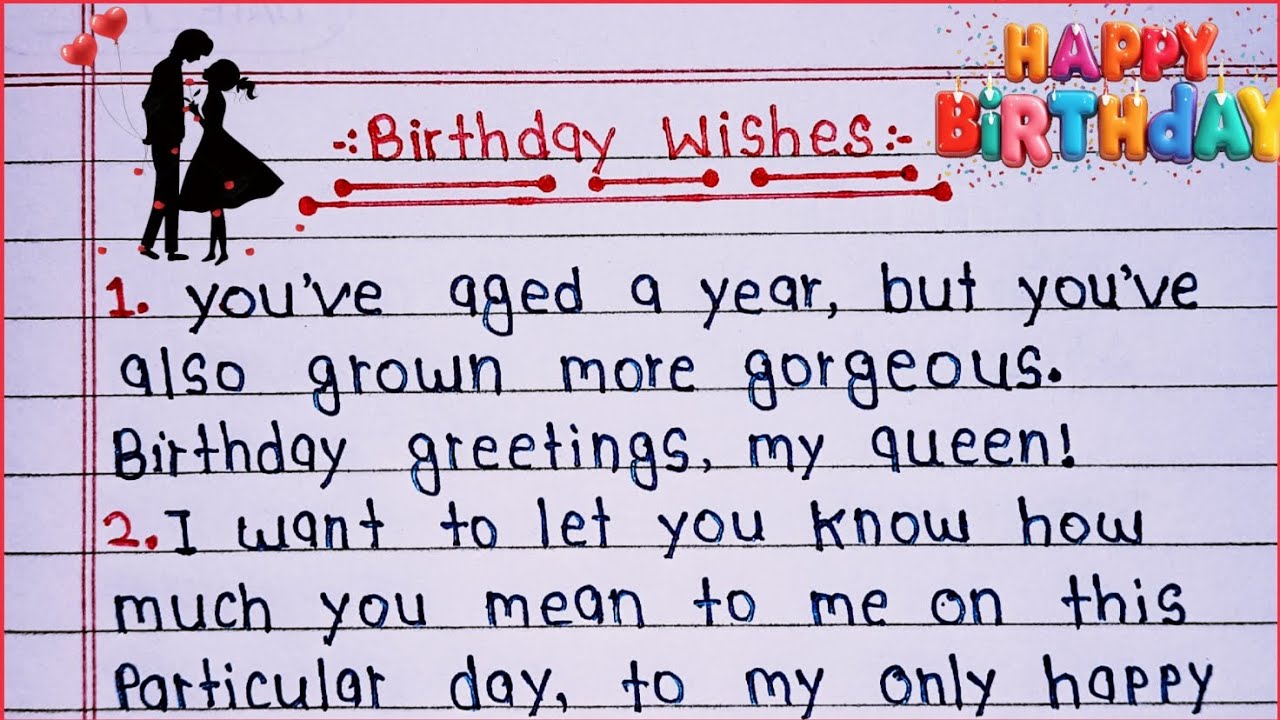 HAPPY
BiRTHdAY
-:Birthday Wishes:-
1. you've aged a year, but you've
also grown more gorgeous.
Birthday greetings, my queen!
2. I want to let you know how
much you mean to me on this
particular day, to my only happy